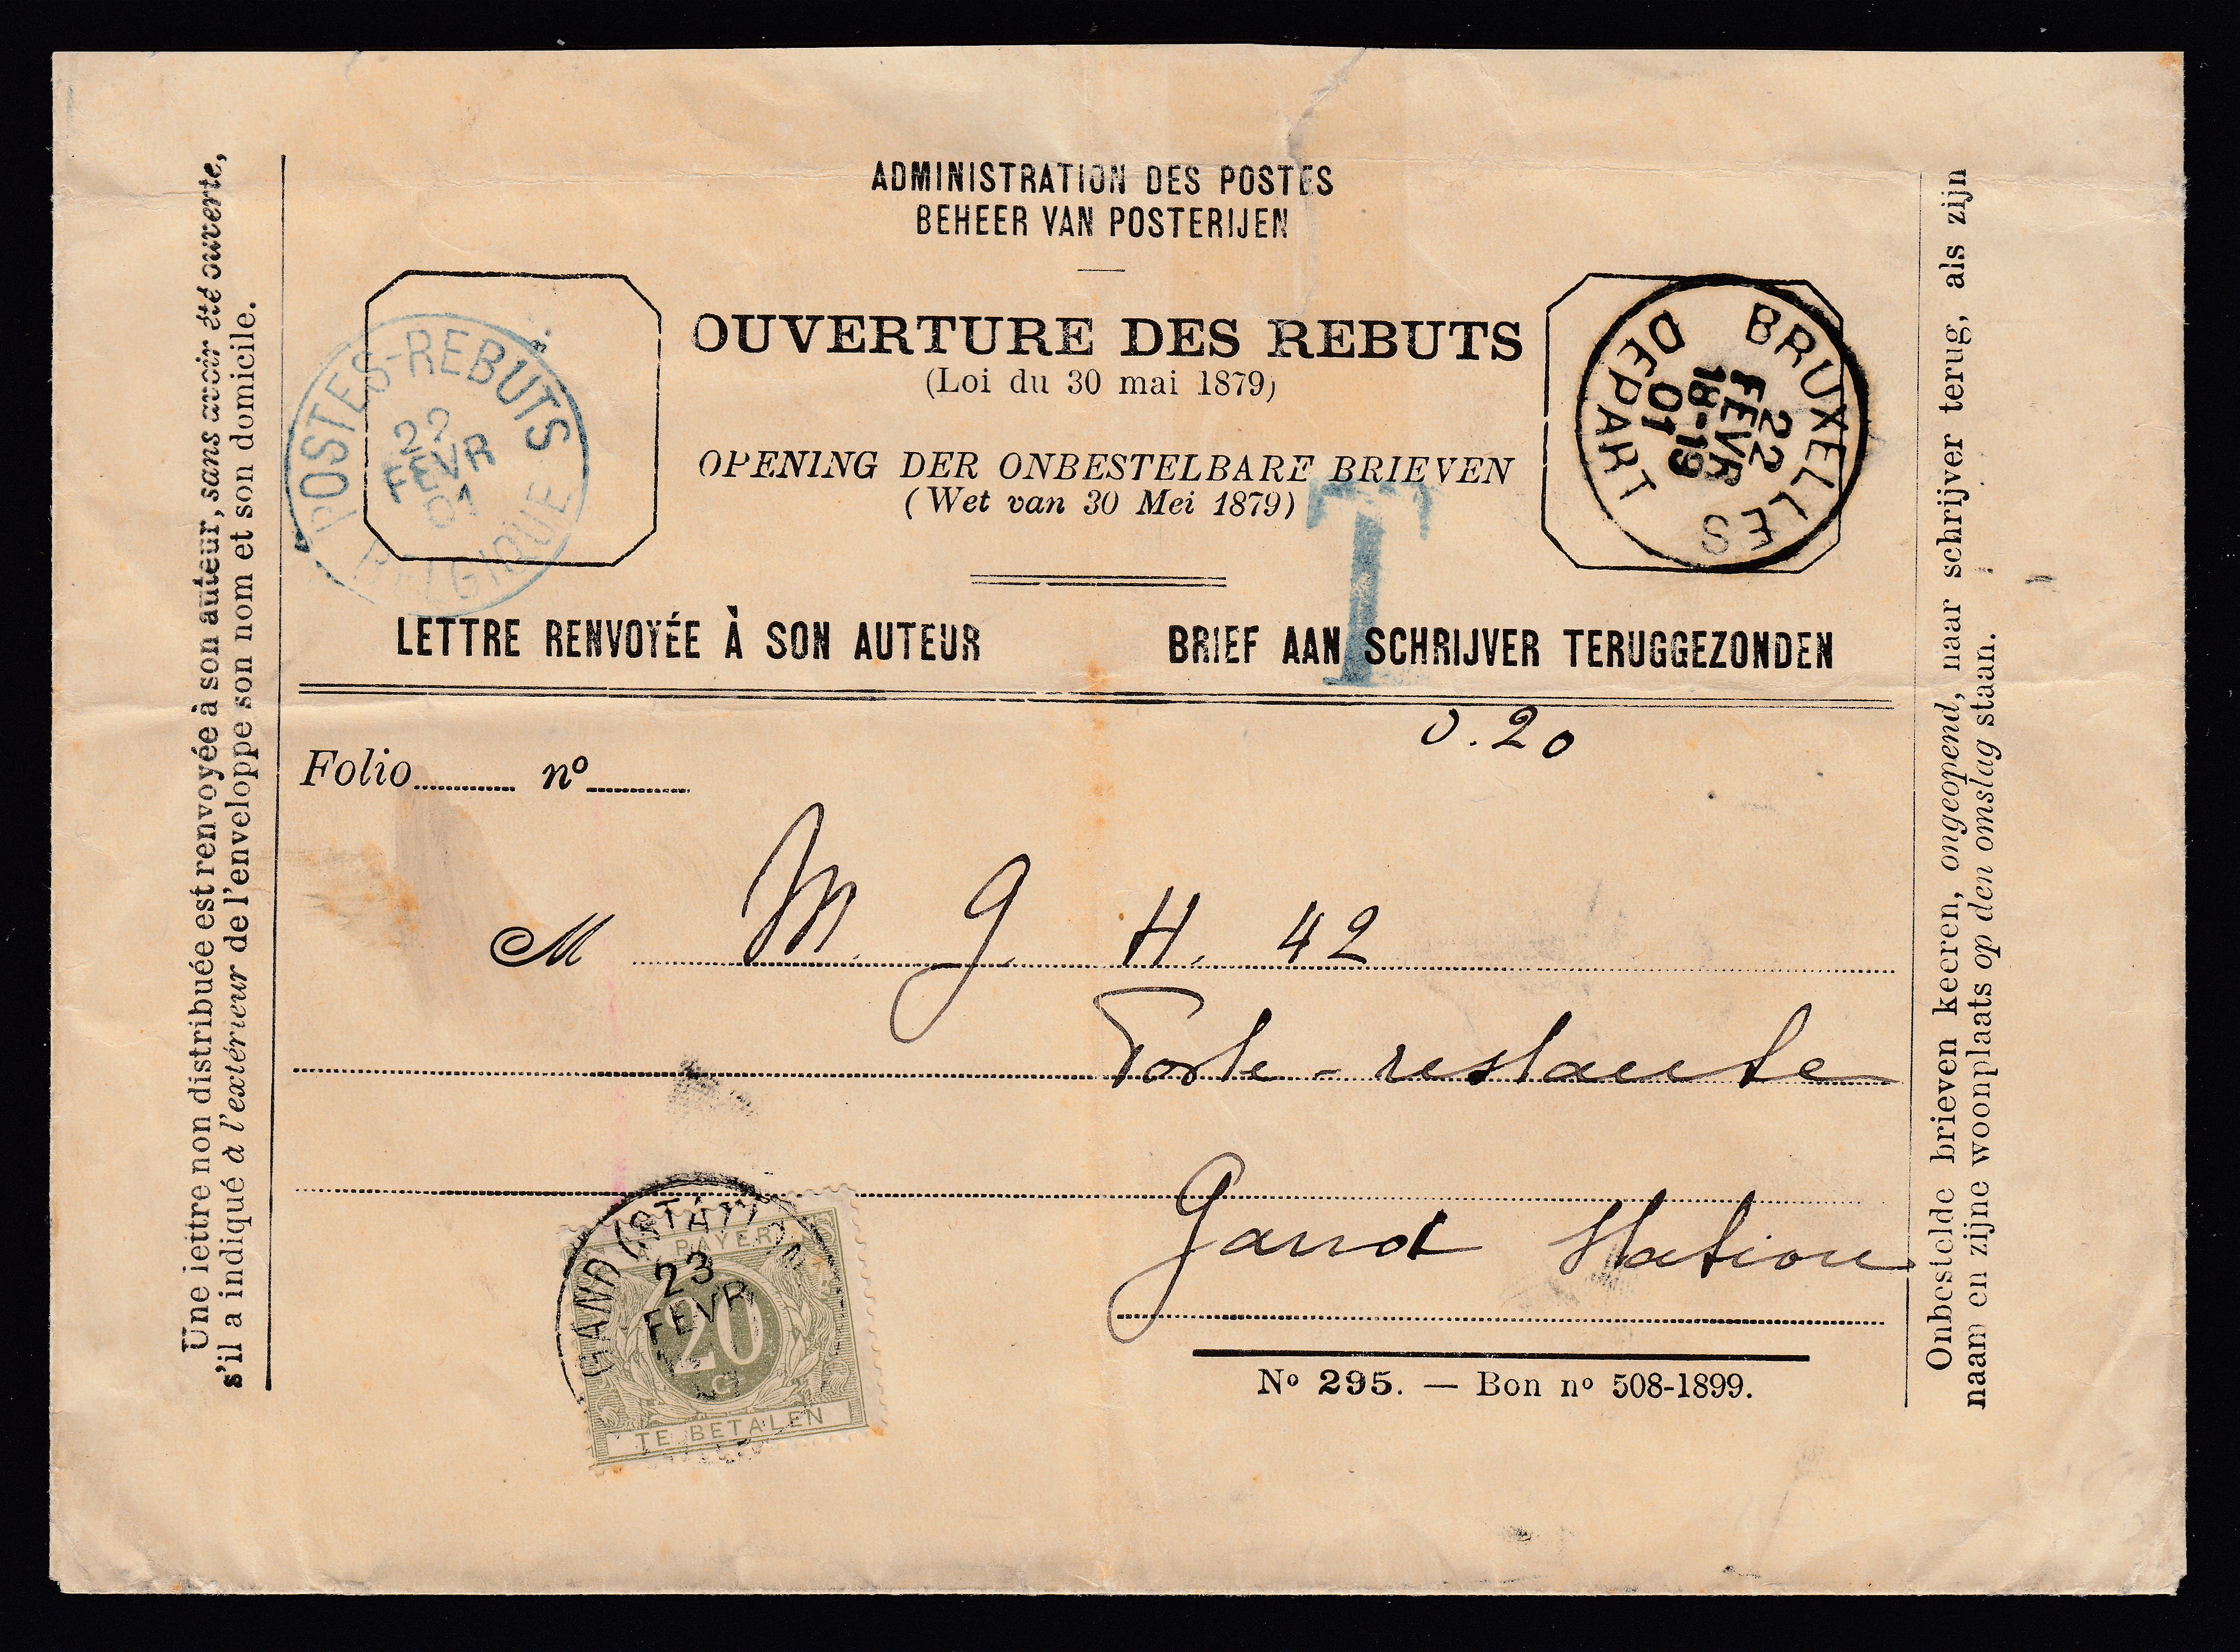 Une lettre non distribuée est renvoyée à son auteur, sans avoir été ouverte,
s'il a indiqué à l'extérieur de l'enveloppe son nom et son domicile.
ADMINISTRATION DES POSTES
BEHEER VAN POSTERIJEN
POSTES-REBUTS
22
FEVR
01
BELGIQUE
OUVERTURE DES REBUTS
(Loi du 30 mai 1879)
OPENING DER ONBESTELBARE BRIEVEN
(Wet van 30 Mei 1879)
BRUXELLES
22
FEVR
18-19
01
DEPART
T
LETTRE RENVOYÉE À SON AUTEUR
BRIEF AAN SCHRIJVER TERUGGEZONDEN
0.20
Folio nº
M M. G. H. 42
Poste-restante
Gand Station
GAND (STATION)
23
FEVR
A PAYER
20
C
TE BETALEN
Nº 295. — Bon nº 508-1899.
Onbestelde brieven keeren, ongeopend, naar schrijver terug, als zijn
naam en zijne woonplaats op den omslag staan.